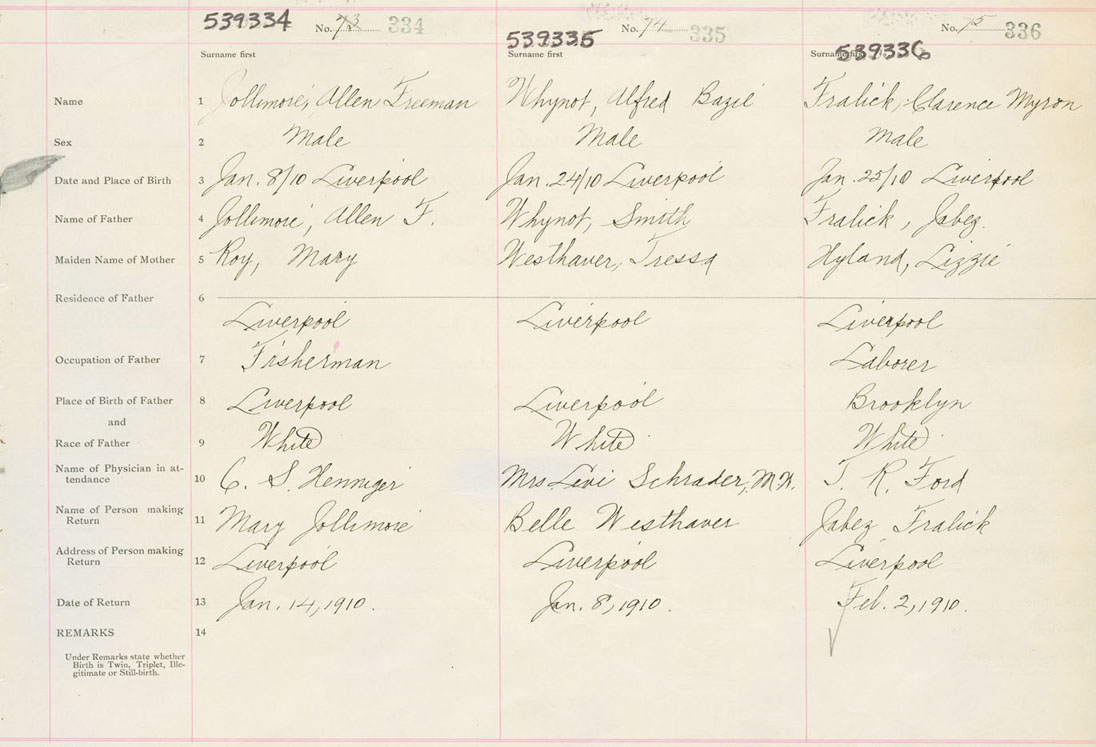 539334 No. 73 334
539335 No. 74 335
539336 No. 75 336
Surname first Surname first Surname first
Name 1 Jollimore, Allen Freeman Whynot, Alfred Bazil Fralick, Clarence Myron
Sex 2 Male Male Male
Date and Place of Birth 3 Jan. 8/10 Liverpool Jan. 24/10 Liverpool Jan. 25/10 Liverpool
Name of Father 4 Jollimore, Allen F. Whynot, Smith Fralick, Jabez.
Maiden Name of Mother 5 Roy, Mary Westhaver, Tressa Hyland, Lizzie
Residence of Father 6
Liverpool Liverpool Liverpool
Occupation of Father 7 Fisherman Laborer
Place of Birth of Father 8 Liverpool Liverpool Brooklyn
and
Race of Father 9 White White White
Name of Physician in at-
tendance 10 C. S. Henniger Mrs Levi Schrader, M.W. T. R. Ford
Name of Person making
Return 11 Mary Jollimore Belle Westhaver Jabez Fralick
Address of Person making
Return 12 Liverpool Liverpool Liverpool
Date of Return 13 Jan. 14, 1910. Jan. 8, 1910. Feb. 2, 1910.
REMARKS 14
Under Remarks state whether
Birth is Twin, Triplet, Ille-
gitimate or Still-birth.